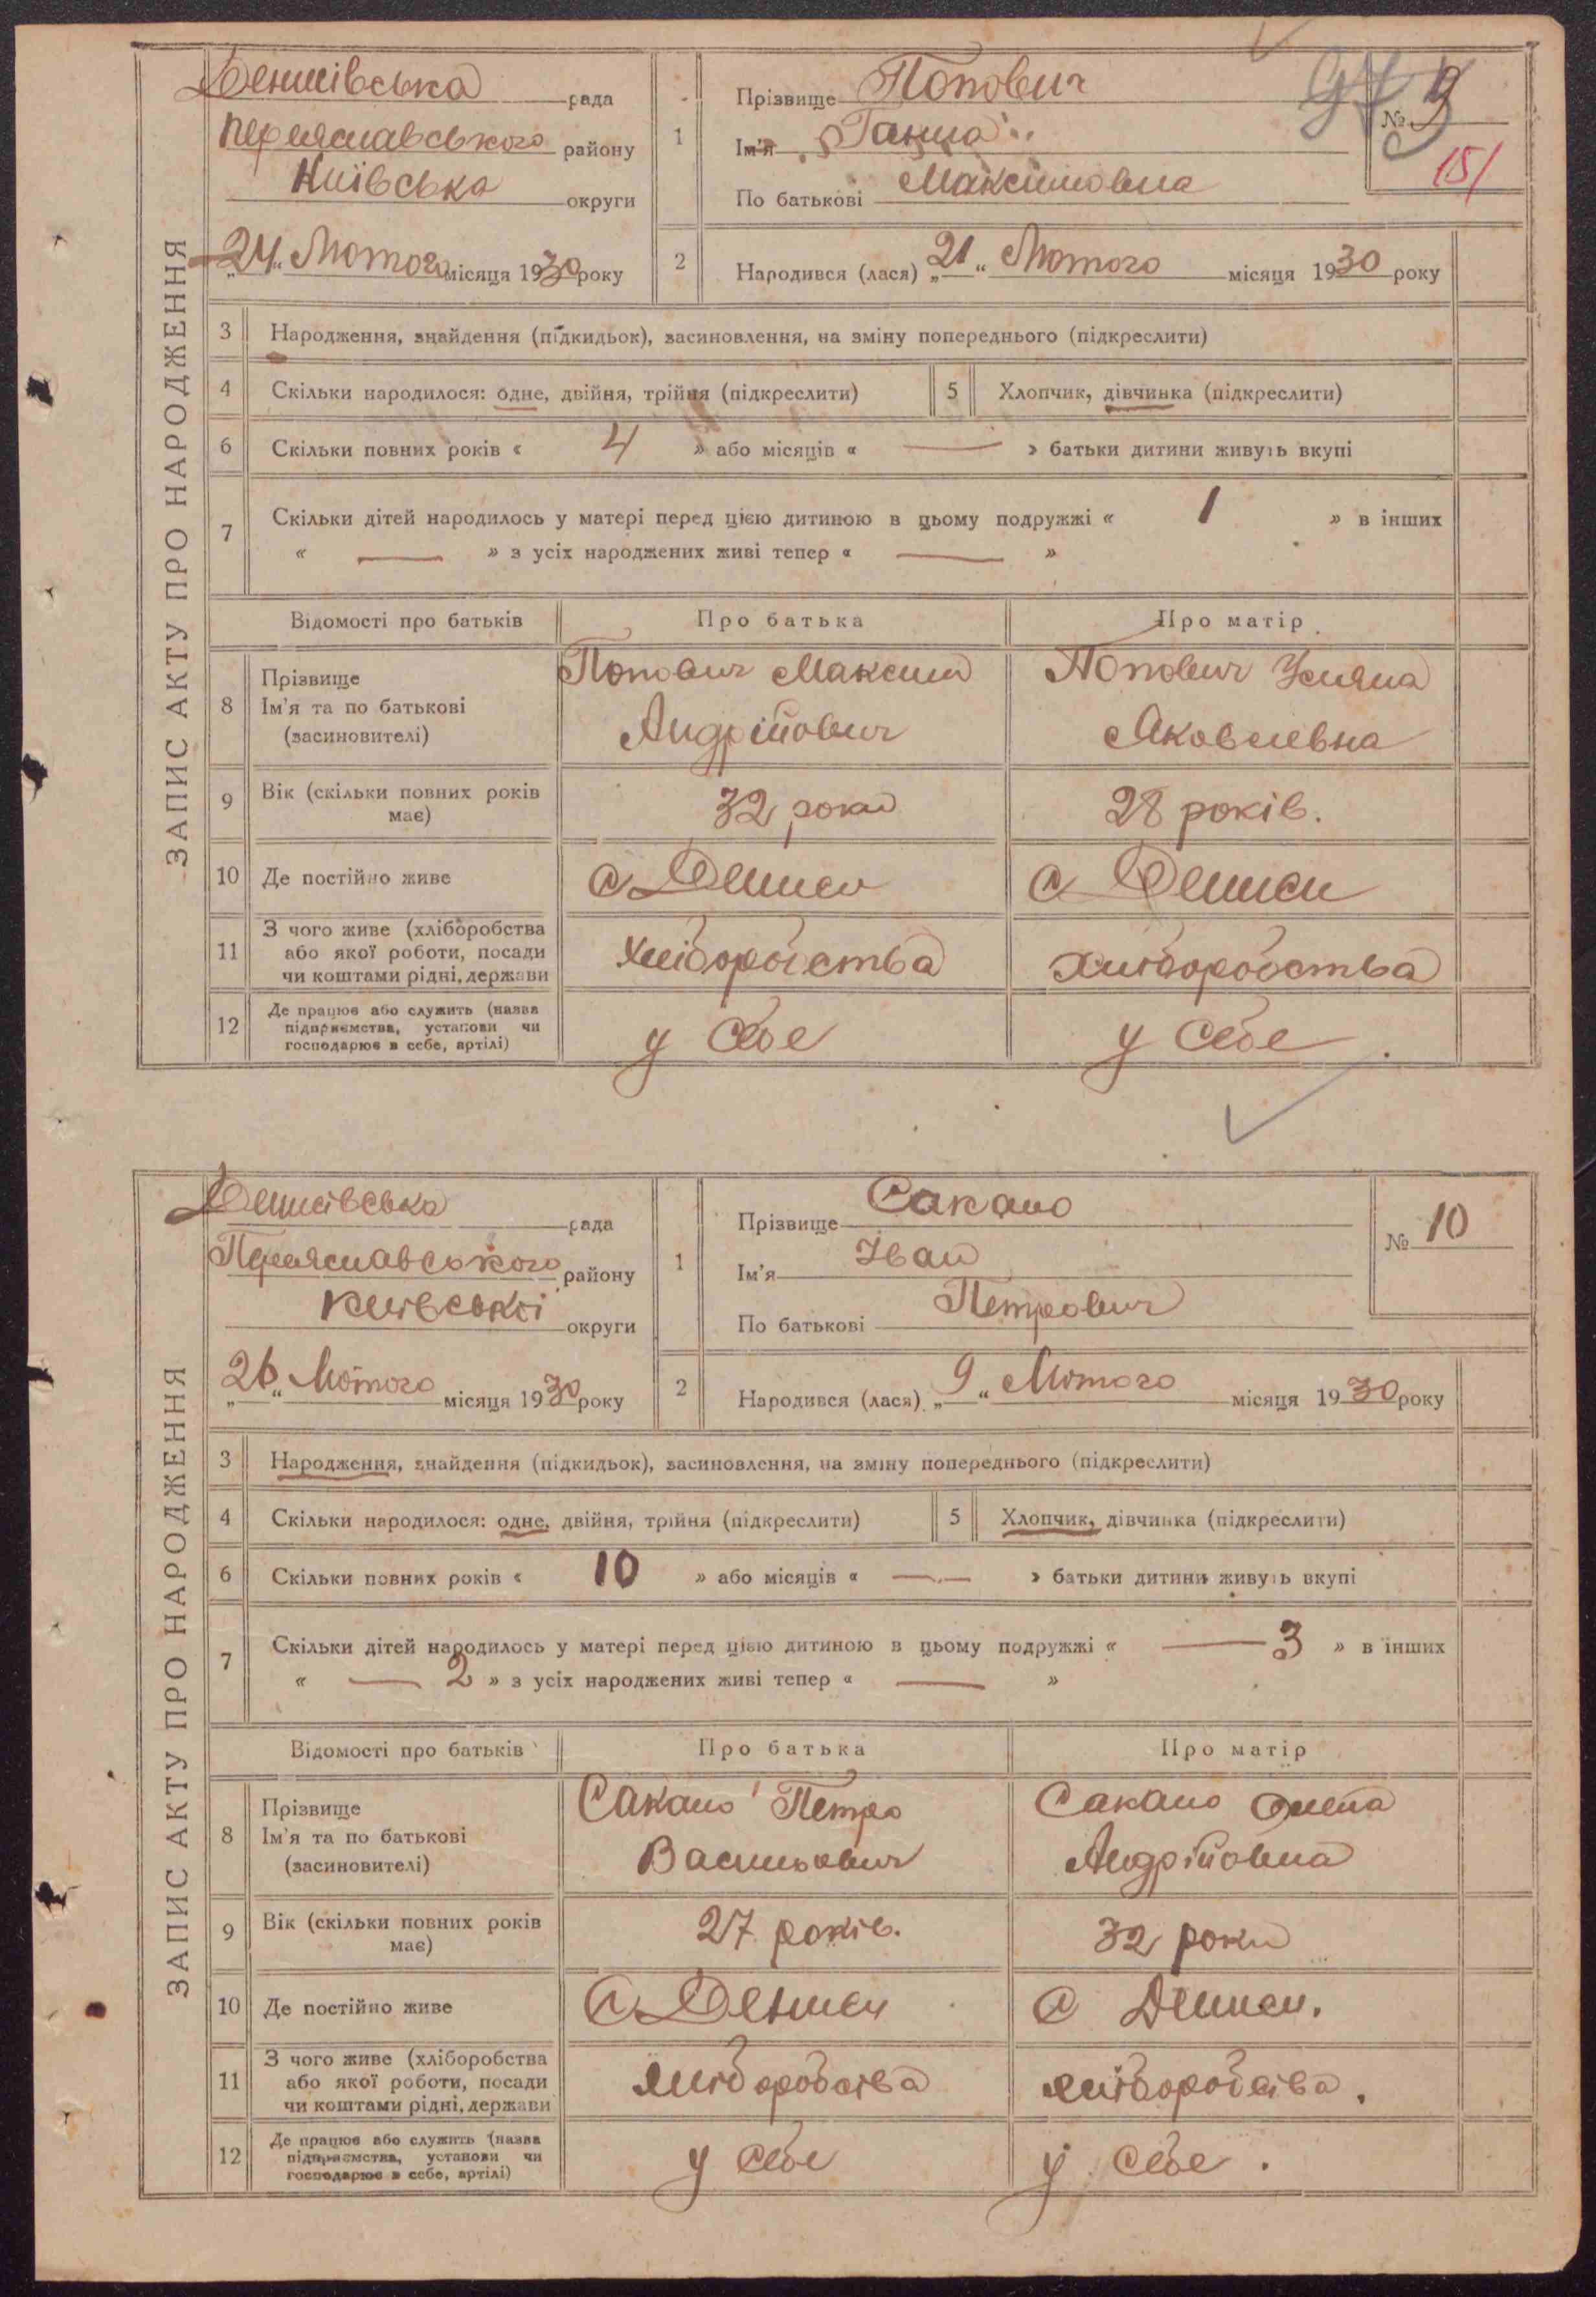 ЗАПИС АКТУ ПРО НАРОДЖЕННЯ
Денисівська рада
Переяславського району
Київська округи
„24“ Лютого місяця 1930 року
1
Прізвище Попович
Ім'я Ганна
По батькові Максимовна
№ 9
151
2
Народився (лася) „21“ Лютого місяця 1930 року
3 Народження, знайдення (підкидьок), засиновлення, на зміну попереднього (підкреслити)
4 Скільки народилося: одне, двійня, трійня (підкреслити) 5 Хлопчик, дівчинка (підкреслити)
6 Скільки повних років « 4 » або місяців « — » батьки дитини живуть вкупі
7 Скільки дітей народилось у матері перед цією дитиною в цьому подружжі « 1 » в інших
« — » з усіх народжених живі тепер « — »
Відомості про батьків Про батька Про матір
8 Прізвище Ім'я та по батькові (засиновителі)
Попович Максим Андрійович
Попович Уляна Яковлевна
9 Вік (скільки повних років має) 32 роки 28 років.
10 Де постійно живе с Дениси с Дениси
11 З чого живе (хліборобства або якої роботи, посади чи коштами рідні, держави хліборобства хліборобства
12 Де працює або служить (назва підприємства, установи чи господарює в себе, артілі) у себе у себе.
ЗАПИС АКТУ ПРО НАРОДЖЕННЯ
Денисівська рада
Переяславського району
Київської округи
„26“ Лютого місяця 1930 року
1
Прізвище Сакало
Ім'я Іван
По батькові Петрович
№ 10
2
Народився (лася) „9“ Лютого місяця 1930 року
3 Народження, знайдення (підкидьок), засиновлення, на зміну попереднього (підкреслити)
4 Скільки народилося: одне, двійня, трійня (підкреслити) 5 Хлопчик, дівчинка (підкреслити)
6 Скільки повних років « 10 » або місяців « — » батьки дитини живуть вкупі
7 Скільки дітей народилось у матері перед цією дитиною в цьому подружжі « — 3 » в інших
« — 2 » з усіх народжених живі тепер « — »
Відомості про батьків Про батька Про матір
8 Прізвище Ім'я та по батькові (засиновителі)
Сакало Петро Васильович
Сакало Олена Андрійовна
9 Вік (скільки повних років має) 27 років. 32 роки
10 Де постійно живе с Дениси с Дениси.
11 З чого живе (хліборобства або якої роботи, посади чи коштами рідні, держави хліборобства хліборобства.
12 Де працює або служить (назва підприємства, установи чи господарює в себе, артілі) у себе у себе.